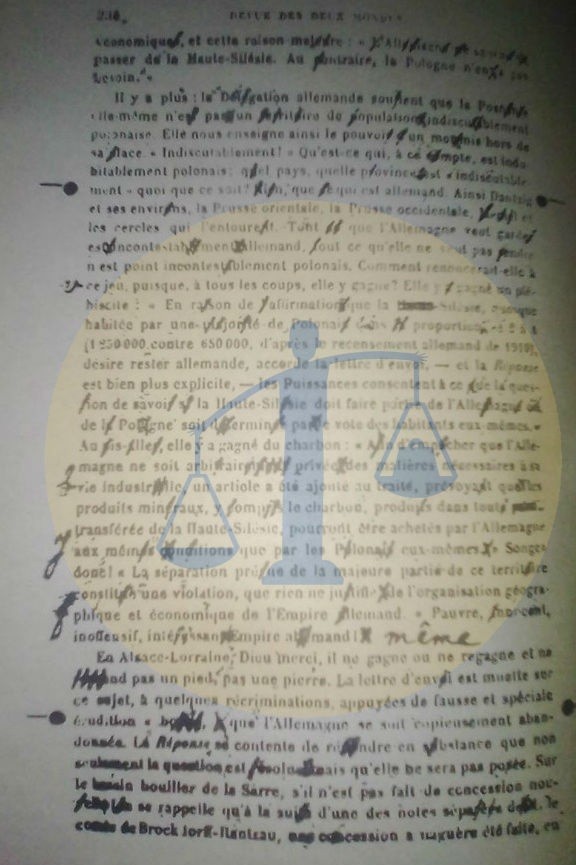 236 REVUE DES DEUX MONDES
économiques, et cette raison majeure : « L'Allemagne
passer de la Haute-Silésie. Au contraire, la Pologne n'en a pas
besoin. »
Il y a plus : la Délégation allemande soutient que la Posnanie
elle-même n'est pas un territoire de population indiscutablement
polonaise. Elle nous enseigne ainsi le pouvoir d'un mot mis hors de
sa place. « Indiscutablement! » Qu'est-ce qui, à ce compte, est indu-
bitablement polonais; quel pays, quelle province est « indiscutable-
ment » quoi que ce soit? Rien, que ce qui est allemand. Ainsi Dantzig
et ses environs, la Prusse orientale, la Prusse occidentale, et
les cercles qui l'entourent. Tout ce que l'Allemagne veut garder
est incontestablement allemand, tout ce qu'elle ne veut pas rendre
n'est point incontestablement polonais. Comment renoncerait-elle à
ce jeu, puisque, à tous les coups, elle y gagne? Elle y a gagné un plé-
biscite : « En raison de l'affirmation que la Haute-Silésie, quoique
habitée par une majorité de Polonais dans la proportion de 2 à 1
(1 250 000 contre 650 000, d'après le recensement allemand de 1910),
désire rester allemande, accorde la lettre d'envoi, — et la Réponse
est bien plus explicite, — les Puissances consentent à ce que la ques-
tion de savoir si la Haute-Silésie doit faire partie de l'Allemagne ou
de la Pologne soit déterminée par le vote des habitants eux-mêmes. »
Au elle y a gagné du charbon : « Afin d'empêcher que l'Alle-
magne ne soit arbitrairement privée des matières nécessaires à sa
vie industrielle, un article a été ajouté au traité, prévoyant que les
produits minéraux, y compris le charbon, produits dans toute
transférée de la Haute-Silésie, pourront être achetés par l'Allemagne
aux mêmes conditions que par les Polonais eux-mêmes. » Songez
donc! « La séparation de la majeure partie de ce territoire
constitue une violation, que rien ne justifie, de l'organisation géogra-
phique et économique de l'Empire allemand. » Pauvre, innocent,
inoffensif, intéressant Empire allemand! même
En Alsace-Lorraine, Dieu merci, il ne gagne ou ne regagne et ne
pas un pied, pas une pierre. La lettre d'envoi est muette sur
ce sujet, à quelques récriminations, appuyées de fausse et spéciale
érudition « que l'Allemagne se soit copieusement aban-
donnée. La Réponse se contente de répondre en substance que non
seulement la question est résolue mais qu'elle ne sera pas posée. Sur
le bassin houiller de la Sarre, s'il n'est pas fait de concession nou-
velle, on se rappelle qu'à la suite d'une des notes séparées de M. le
comte de Brockdorff-Rantzau, une concession a naguère été faite, en